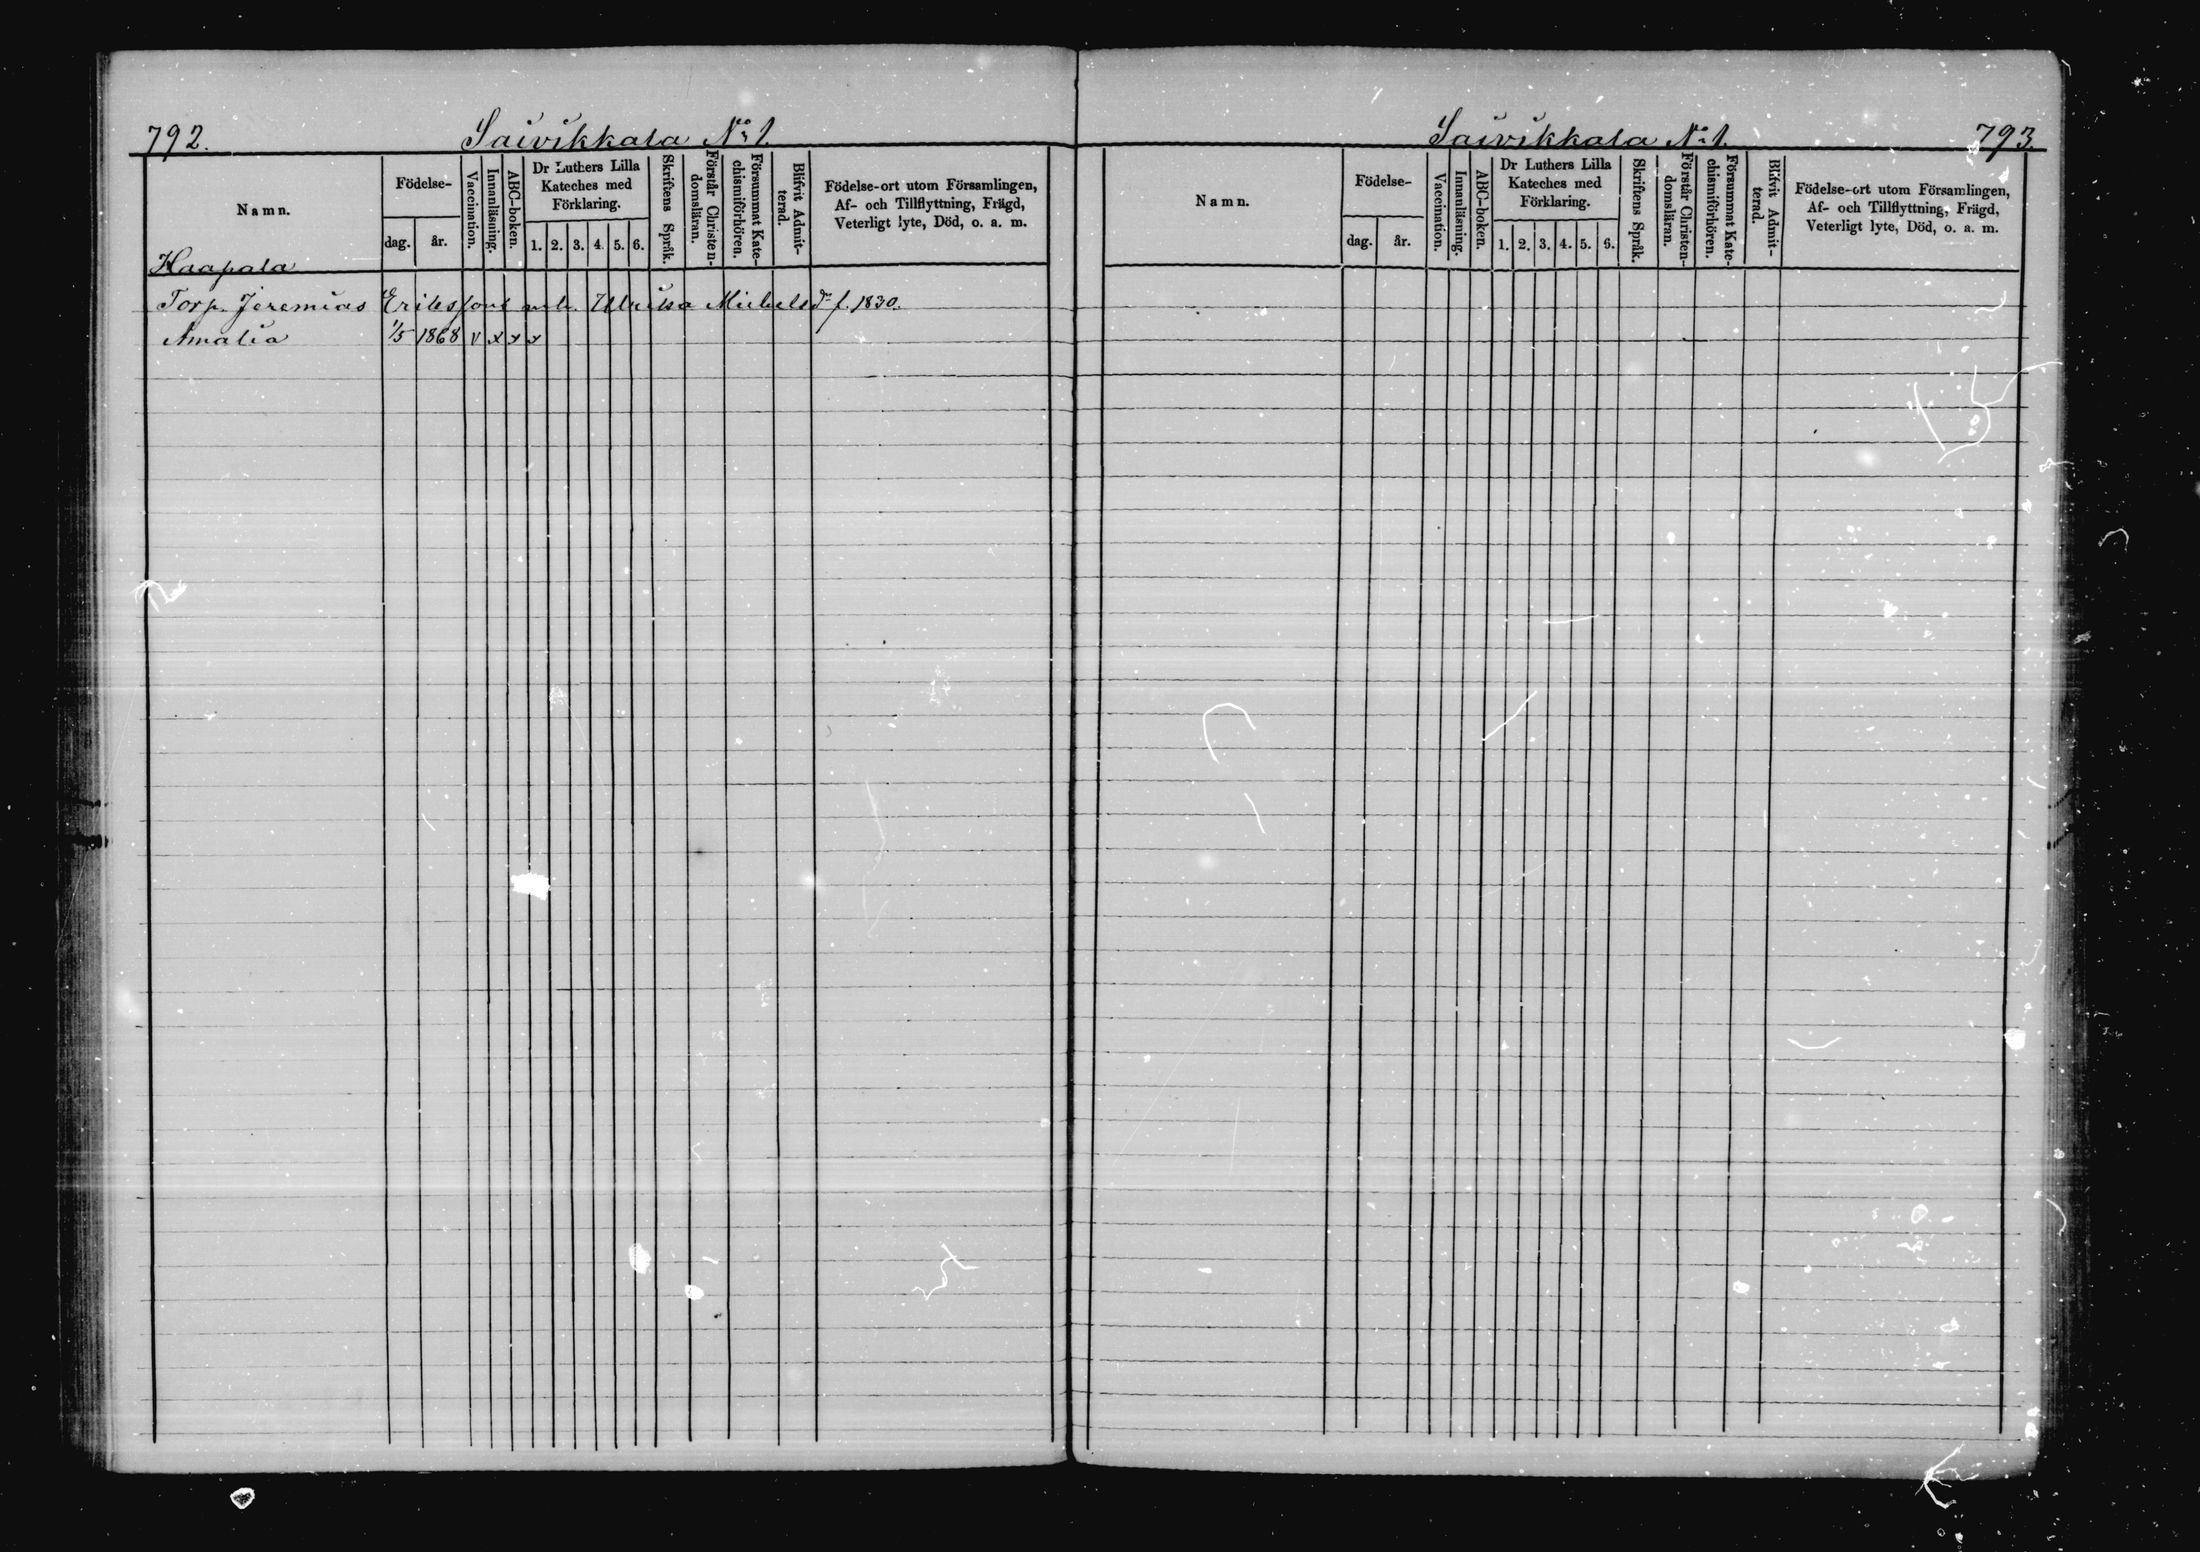 792.
Saivikkala No 1.
Namn.
Födelse-
dag.
år.
Vaccination.
Innanläsning.
ABC-boken.
Dr Luthers Lilla
Kateches med
Förklaring.
1. 2. 3. 4. 5. 6.
Skriftens Språk.
Förstår Christen-
domsläran.
Försummat Kate-
chismiförhören.
Blifvit Admit-
terad.
Födelse-ort utom Församlingen,
Af- och Tillflyttning, Frägd,
Veterligt lyte, Död, o. a. m.
Haapala
Torp. Jeremias Erikssons Ulrika Michelsdr f. 1830.
Amalia 1/5 1868 v x x x
Saivikkala No 1.
793.
Namn.
Födelse-
dag.
år.
Vaccination.
Innanläsning.
ABC-boken.
Dr Luthers Lilla
Kateches med
Förklaring.
1. 2. 3. 4. 5. 6.
Skriftens Språk.
Förstår Christen-
domsläran.
Försummat Kate-
chismiförhören.
Blifvit Admit-
terad.
Födelse-ort utom Församlingen,
Af- och Tillflyttning, Frägd,
Veterligt lyte, Död, o. a. m.